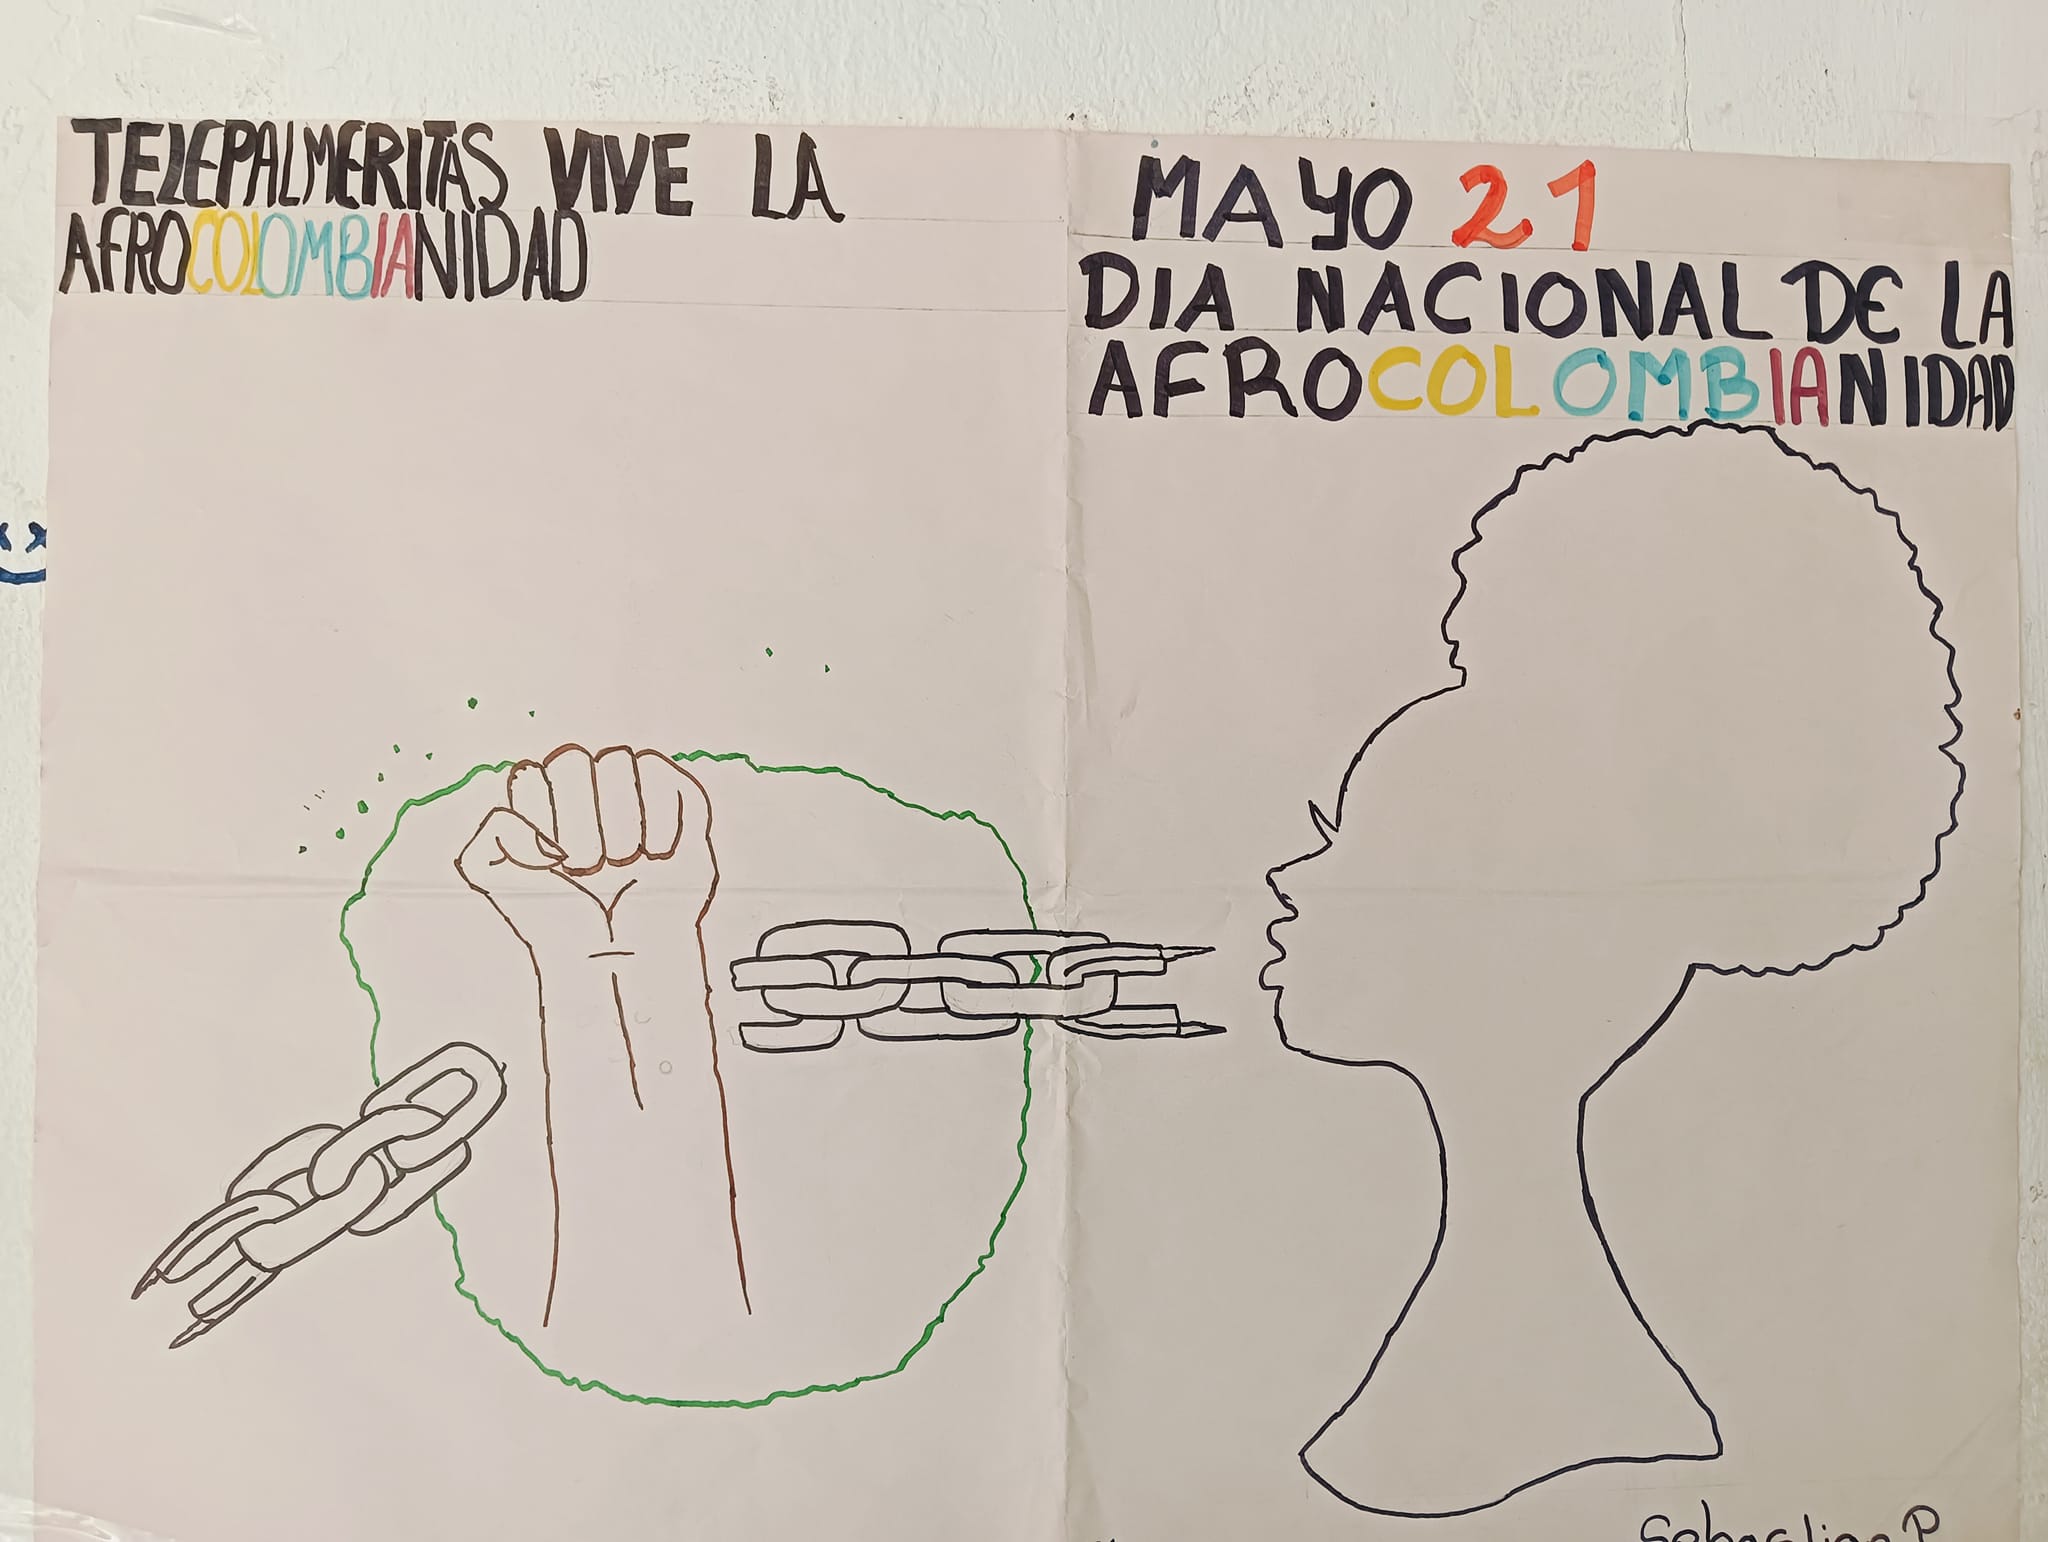 TELEPALMERITAS VIVE LA
AFROCOLOMBIANIDAD
MAYO 21
DIA NACIONAL DE LA
AFROCOLOMBIANIDAD
Sebastian P